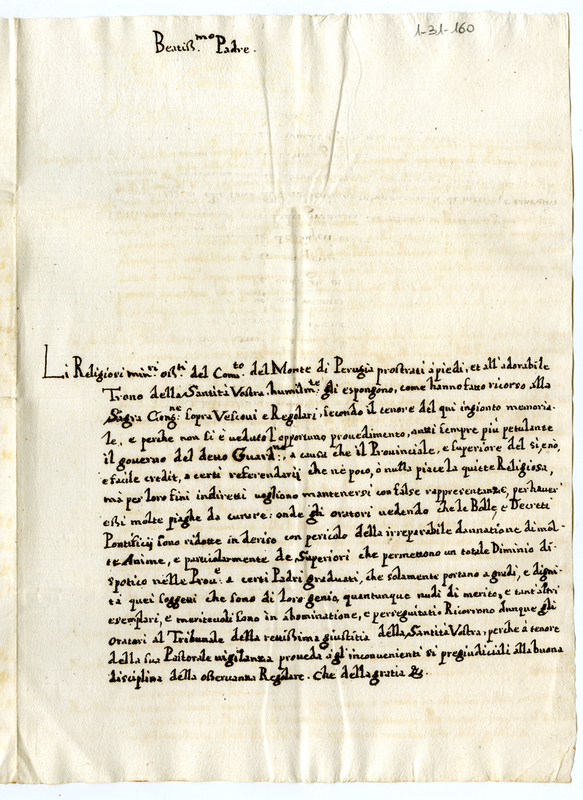 1-31-160
Beatiss.mo Padre.
Li Religiosi min.ri oss.ti del Conu.to del Monte di Perugia prostrati à piedi, et all'adorabile
Trono della Santità Vostra humilm.te gli espongono, come hanno fatto ricorso alla
Sagra Cong.ne sopra Vescoui e Regolari, secondo il tenore del quì ingionto memoria-
le, e perche non si è ueduto l'opportuno prouedimento, anzi sempre più petulante
il gouerno del detto Guard.no, a causa che il Prouinciale, e superiore del
e facile credit, a certi referendarij che nè poco, ò nulla piace la quiete Religiosa,
mà per loro fini indiretti uogliono mantenersi con false rappresentanze, per hauer
essi molte piaghe da curare: onde gli oratori uedendo che le Bolle, e Decreti
Pontificij sono ridotte in deriso con pericolo della irreparabile dannatione di mol-
te Anime, e particolarmente de Superiori che permettono un totale Diminio di-
spotico nelle Prou.e a certi Padri graduati, che solamente portano a gradi, e digni-
tà quei soggetti che sono di loro genio, quantunque nudi di merito, e tant'altri
esemplari, e meriteuoli sono in abominatione, e perseguitati. Ricorrono dunque gli
oratori al Tribunale della rettissima giustitia della Santità Vostra, perche à tenore
della sua Pastorale uigilanza proueda à gl'inconuenienti sì pregiudiciali alla buona
disciplina della osseruanza Regolare. Che della gratia &c.